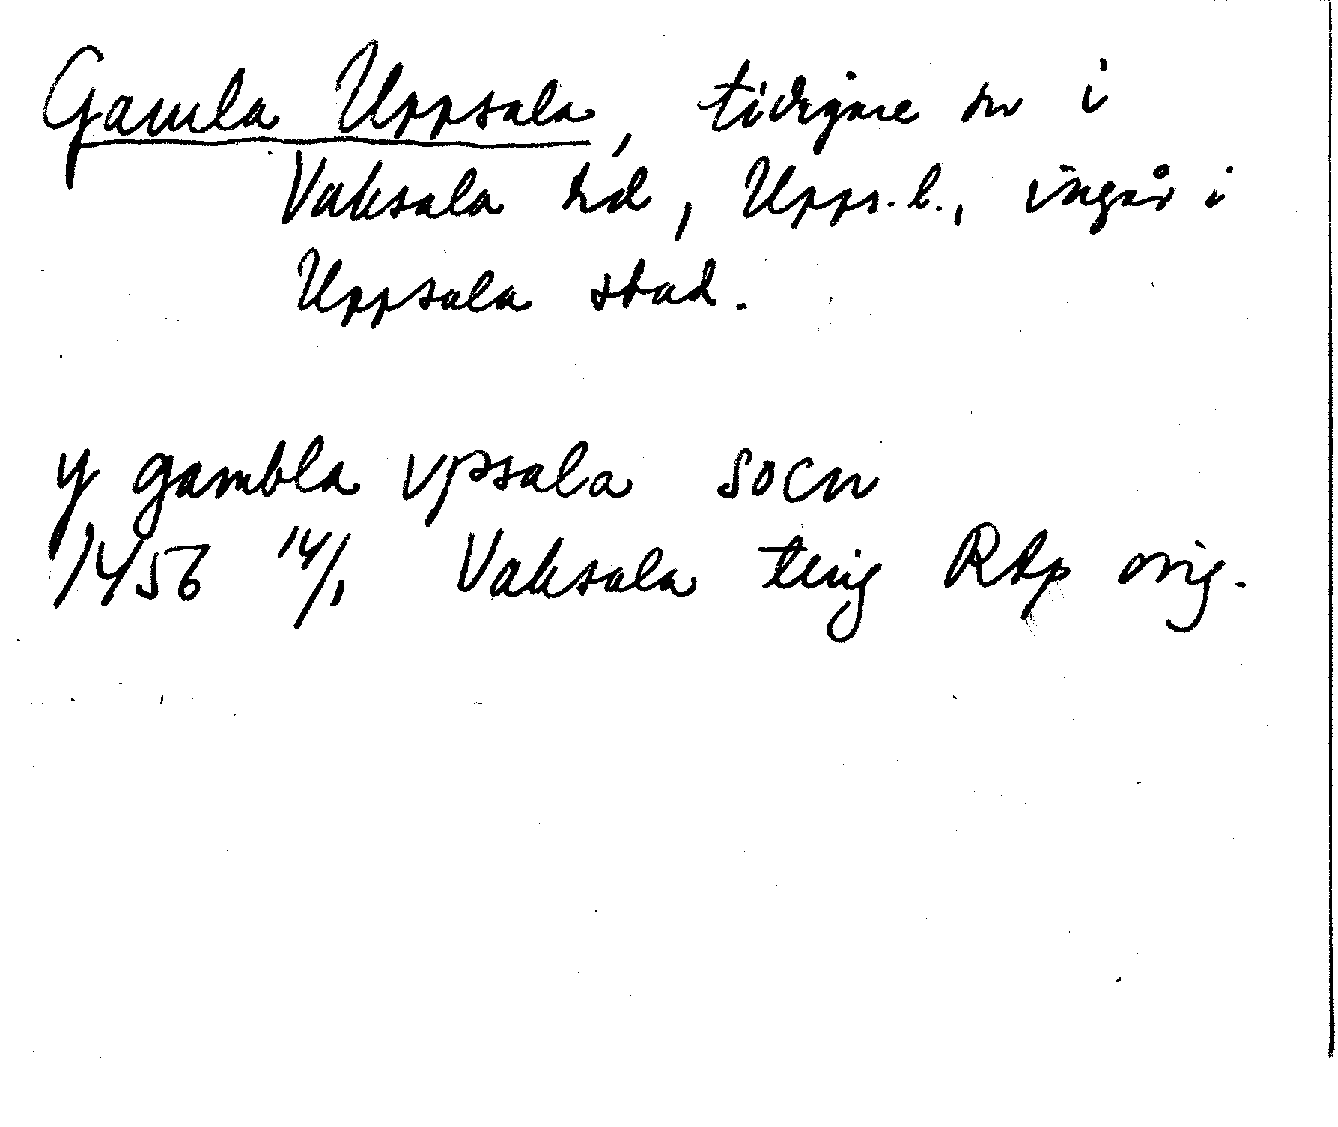 Gamla Uppsala, tidigare sn i
Vaksala hd, Upps. l., ingår i
Uppsala stad.
y gambla vpsala socn
1456 14/1 Vaksala ting RAp orig.